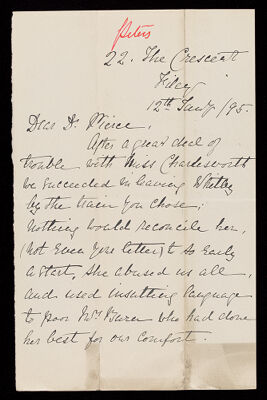 Peters
22. The Crescent
Filey
12th Jany /95.
Dear Dr. Pierce,
After a great deal of
trouble with Miss Charlesworth
we succeeded in leaving Whitby
by the train you chose;
nothing would reconcile her,
(not even your letter) to so early
a start, she abused us all,
and used insulting language
to poor Mrs who had done
her best for our comfort.